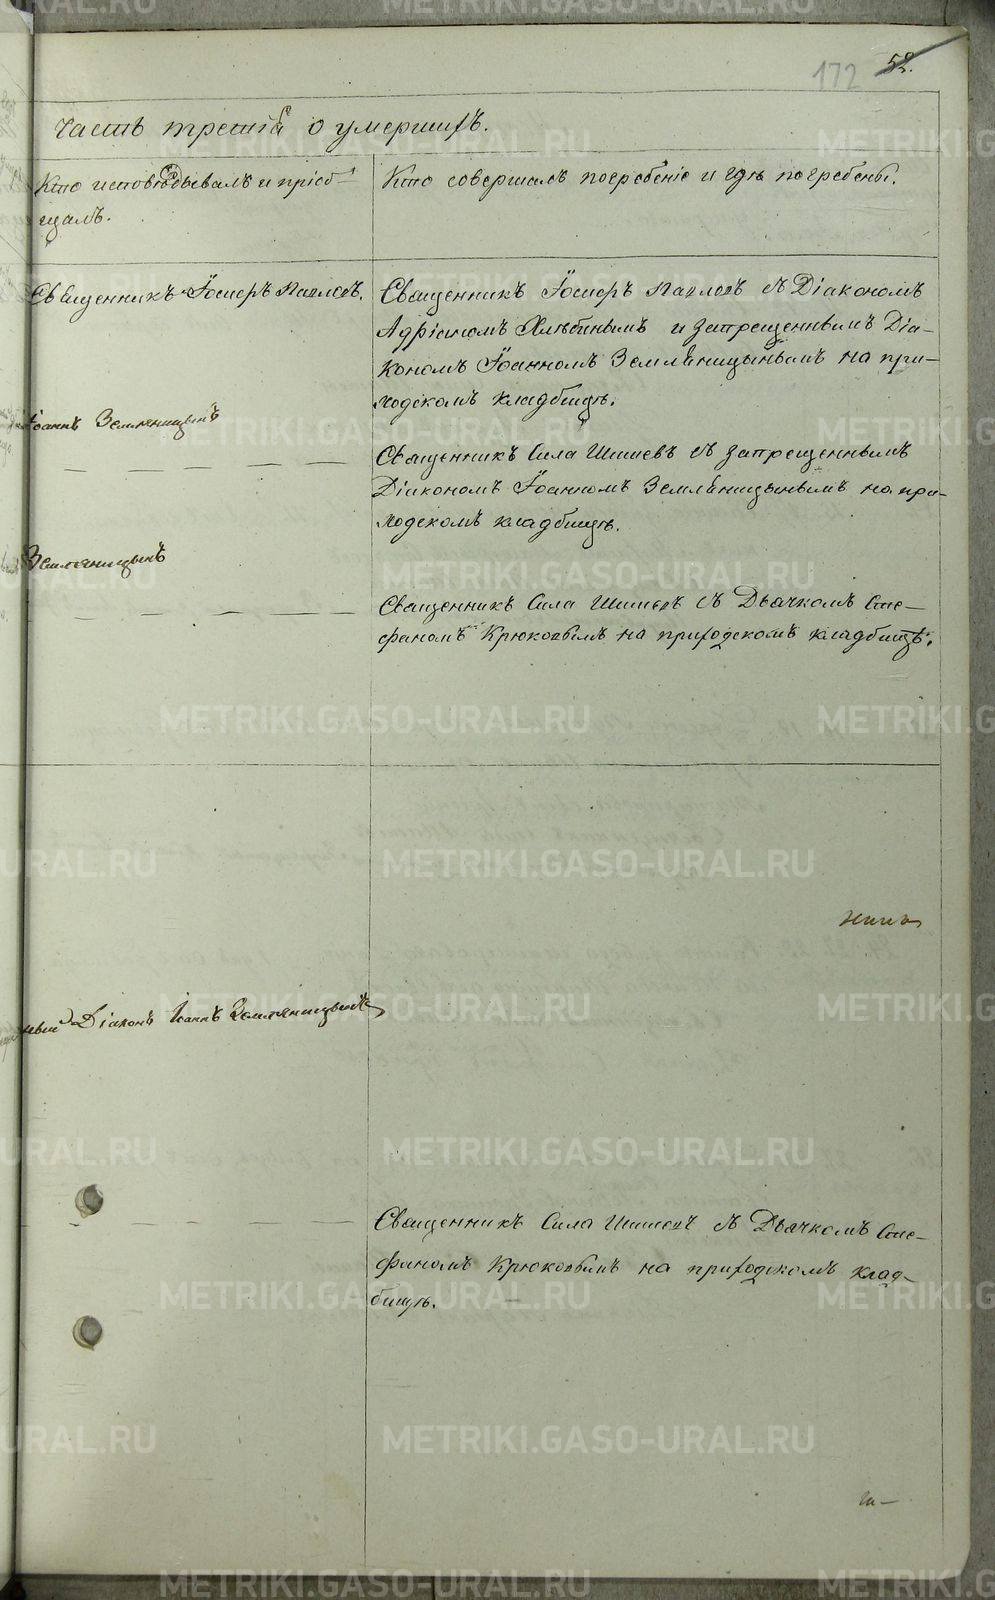 172 52.
Часть третія о умершихъ.
Кто исповѣдывалъ и пріоб-
щалъ.
Кто совершалъ погребеніе и гдѣ погребены.
Священникъ Іосифъ Павловъ.
Священникъ Іосифъ Павловъ съ Діакономъ
Адріаномъ Хлѣбинымъ и запрещеннымъ Діа-
кономъ Іоанномъ Земляницынымъ на при-
ходскомъ кладбищѣ.
Іоаннъ Земляницынъ
Священникъ Сила Шишевъ съ запрещеннымъ
Діакономъ Іоанномъ Земляницынымъ на при-
ходскомъ кладбищѣ.
Земляницынъ
Священникъ Сила Шишевъ съ Дьячкомъ Сте-
фаномъ Крюковымъ на приходскомъ кладбищѣ.
Діаконъ Іоаннъ Земляницынъ
Священникъ Сила Шишевъ съ Дьячкомъ Сте-
фаномъ Крюковымъ на приходскомъ клад-
бищѣ.
METRIKI.GASO-URAL.RU